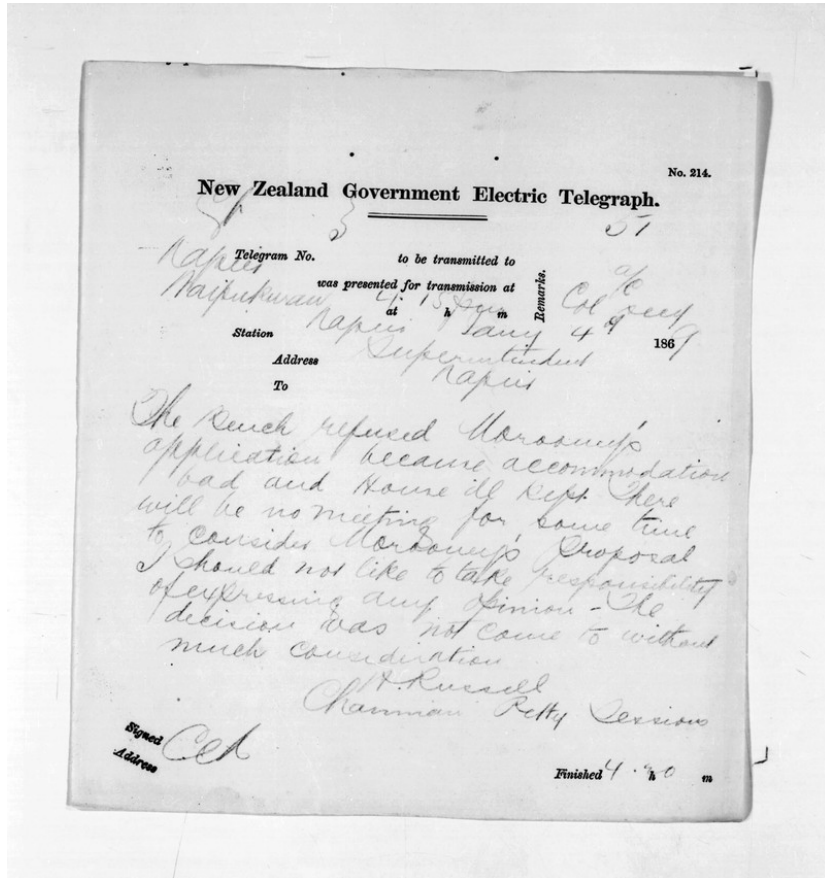 No. 214.
New Zealand Government Electric Telegraph.
3 51
Telegram No. to be transmitted to
Napier
was presented for transmission at
Waipukurau 4.15 pm
at h m
Remarks.
Station Napier Jany 4 1869
Address Superintendent
To Napier
The Bench refused
application because accommodation
bad and House ill kept. There
will be no meeting for some time
to consider proposal
I should not like to take responsibility
of expressing any opinion - The
decision was not come to without
much consideration
H. Russell
Chairman Petty Sessions
Signed
Address
Finished 4.20 h m